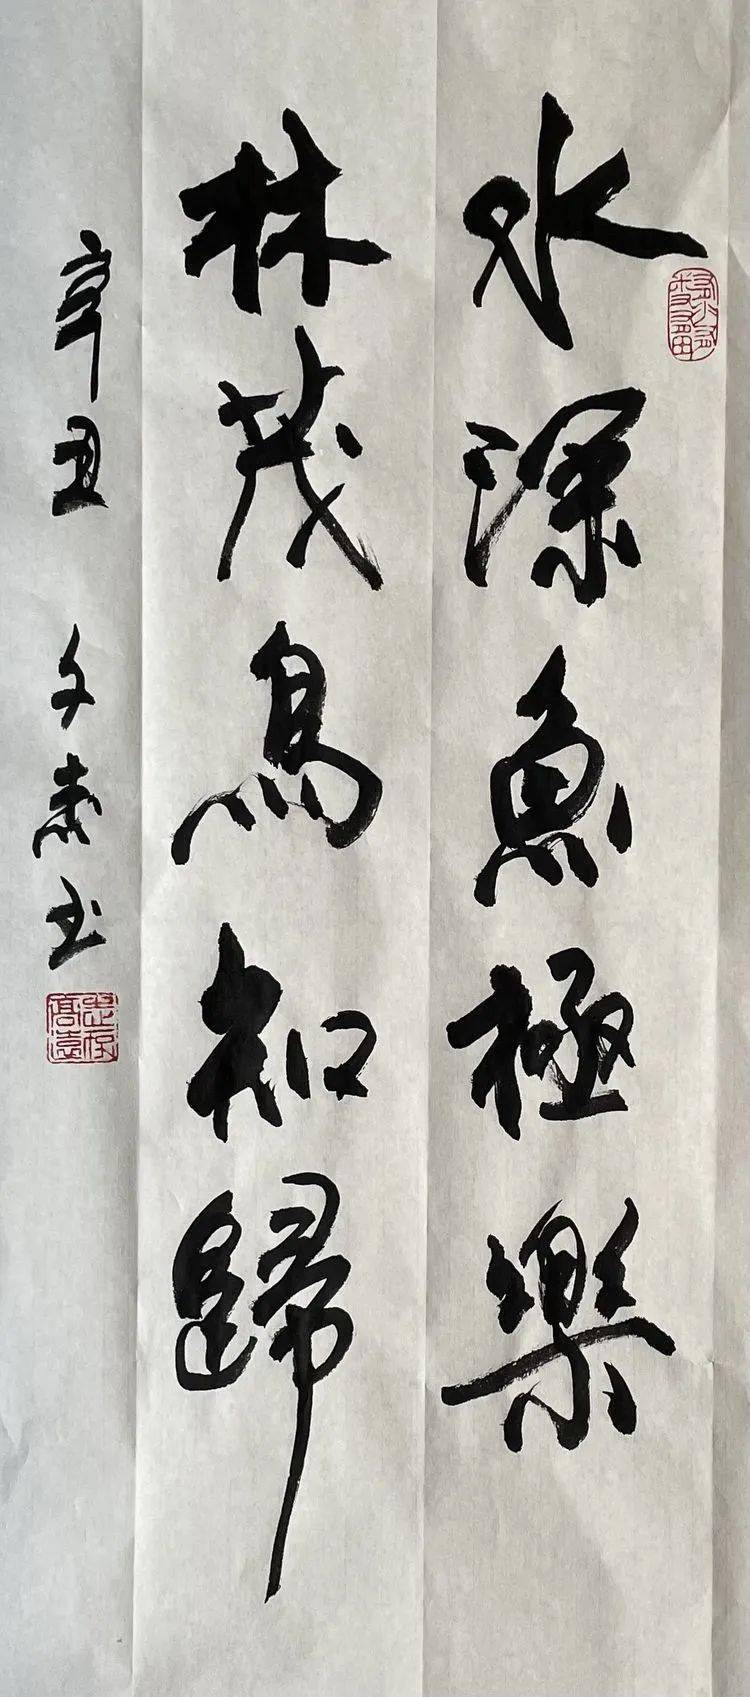 水深魚極樂
林茂鳥知歸
辛丑